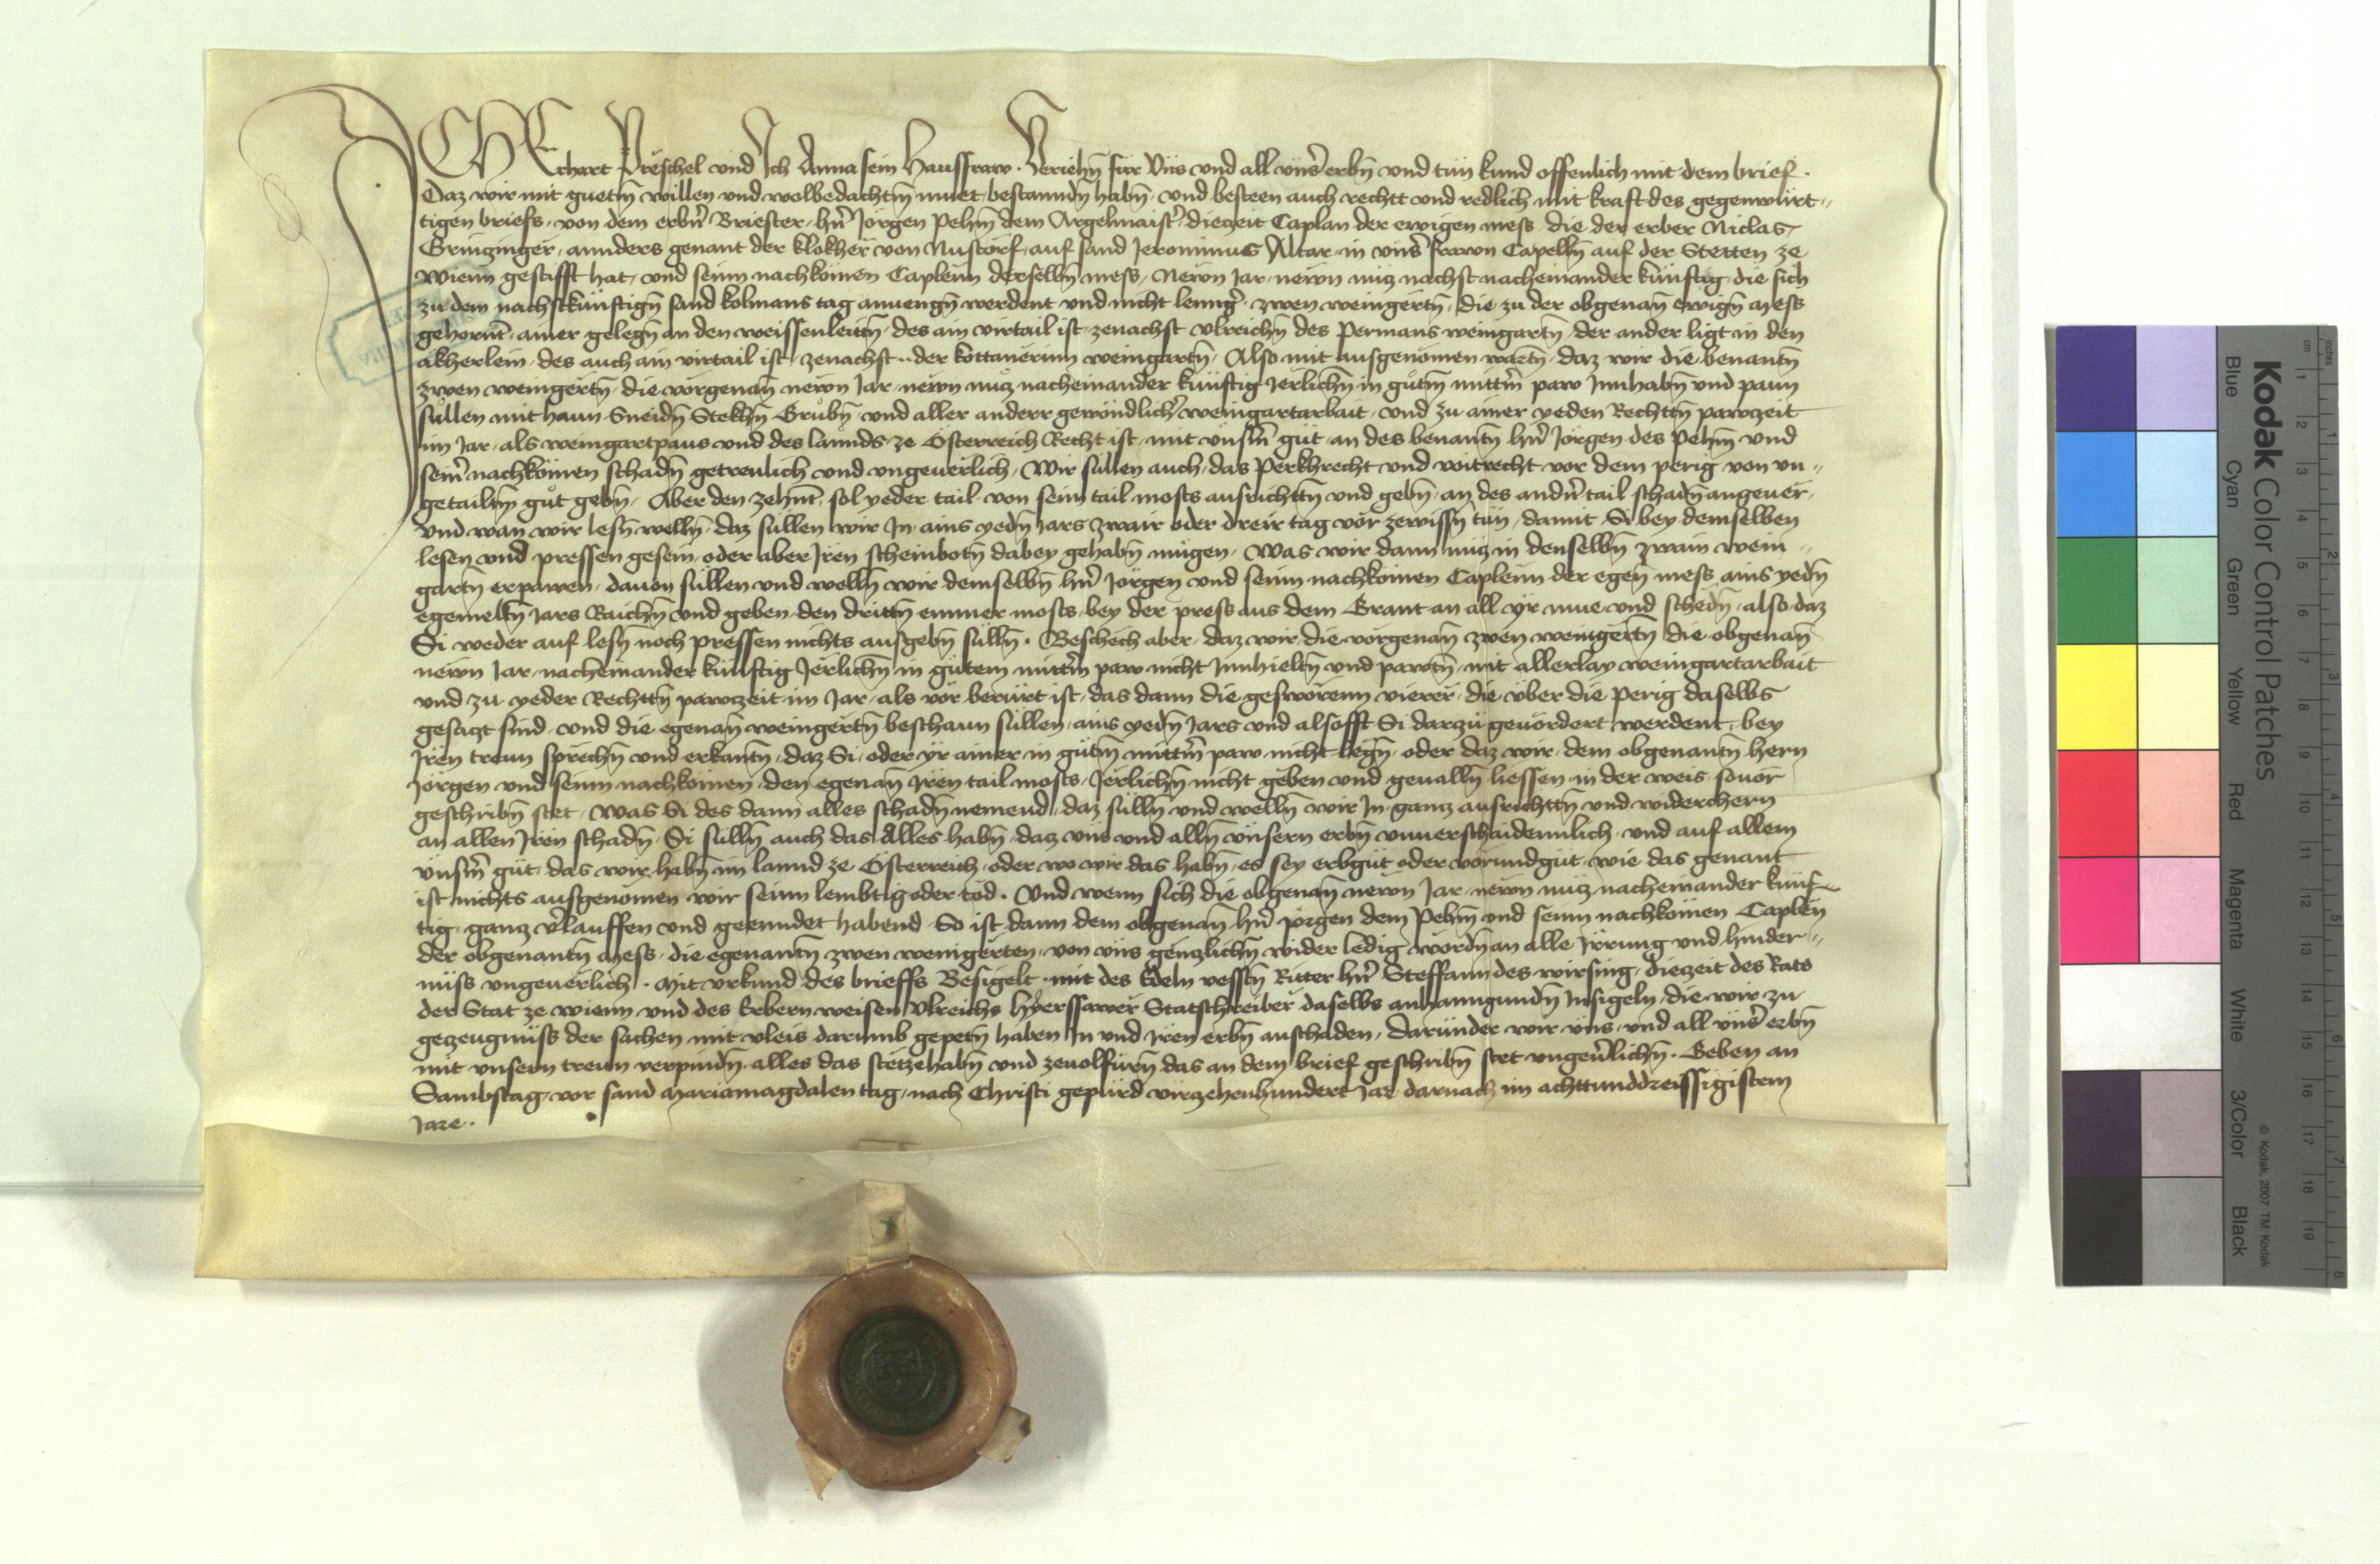 ICH Erhart Pröschel vnd Ich Anna sein Hausfraw · Veriehn̄ für vns vnd all vnser erbn̄ vnd tün kund offenlich mit dem brief ·
Daz wir mit guetm̄ willen vnd wolbedachtm̄ muet bestanndn̄ habn̄ · vnd besteen auch rechtt vnd redlich mit kraft des gegenwürt„
tigen briefs · von dem erbn̄ Briester · hn̄ Jörgen Pehm̄ dem Orgelmaister · diezeit Caplan der ewigen mess · die der erber Niclas
Grinzinger · annders genant der klokher von Nustorf · auf sand Jeronimus Altar · in vnser frawn Capelln̄ auf der Stetten ze
Wienn gestifft hat · vnd seinn nachkömen Caplenn derselbn̄ mess · Newn Jar · newn nüz nachst nacheinander künftig · die sich
zu dem nachstkünftign̄ sand kolmans tag anuengn̄ werdent vnd nicht lennger · zwen weingertn̄ · die zu der obgenan̄ ewign̄ Mess
gehörnt · ainer gelegn̄ an den weissenleittn̄ · des ain virtail ist · zenachst vlreichn̄ des Permans weingartn̄ · der ander ligt in den
akherlein · des auch ain virtail ist · zenachst ·· der kottanerinn weingartn̄ · Also mit ausgenomen wartn̄ · daz wir die benantn̄
zwen weingertn̄ · die vorgenan̄ newn Jar · newn nuz nacheinander künftig Jerlichn̄ in gůtm̄ mittm̄ paw Innhabn̄ vnd paun
süllen mit haun Sneidn̄ Stekhn̄ Grůbn̄ · vnd aller anderr gewöndlicher weingartarbait · vnd zu ainer yeden Rechttn̄ pawzeit
im Jar · als weingartpaus vnd des lannds ze Österreich Recht ist · mit vnserm̄ güt · an des benantn̄ hn̄ Jörgen des Pehm̄ vnd
seiner nachkömen schadn̄ getreulich vnd vngeuerlich · Wir süllen auch · das Perkhrecht vnd voitrecht vor dem perig von vn„
getailtm̄ gůt gebn̄ · Aber den zehnt · sol yeder tail von seim tail mosts ausrichttn̄ vnd gebn̄ · an des andn̄ tail schadn̄ angeuer ·
vnd wan wir lesn̄ welln̄ · daz süllen wir In · ains yedn̄ Jars zwair oder dreir tag vor zewissn̄ tün · damit Si bey demselben
lesen vnd pressen gesein · oder aber Jren scheinbotn̄ dabey gehabn̄ mügen · Was wir dann nüz in denselbn̄ zwain wein„
gartn̄ erpawen · dauon süllen vnd welln̄ wir demselbn̄ hn̄ Jörgen vnd seinn nachkömen Caplenn der egen̄ mess ains yedn̄
egemeltn̄ Jars Raichn̄ vnd geben · den drittn̄ emmer mosts · bey der press aus dem Grant · an all yr mue vnd schedn̄ · also daz
Si weder auf lesn̄ noch pressen nichts ausgebn̄ sülln̄ · Beschech aber · daz wir die vorgenan̄ zwen weingertn̄ die obgenan̄
newn Jar · nacheinander künftig Jerlichn̄ in gütem mittm̄ paw nicht Innhieltn̄ vnd pawtn̄ · mit allerlay weingartarbait
vnd zu yeder Rechttn̄ pawzeit im Jar · als vor berürt ist · das dann die geswörenn vierer · die über die perig daselbs
gesazt sind · vnd die egenan̄ weingertn̄ beschaun süllen · ains yedn̄ Jars vnd alsofft Si darzü geuördert werdent · bey
Jren treun sprechn̄ vnd erkantn̄ · daz Si · oder yr ainer in gütm̄ mittm̄ paw nicht legn̄ · oder daz wir · dem obgenantn̄ hern
Jörgen vnd seinn nachkömen · den egenan̄ Jren tail mosts · Jerlichn̄ nicht geben vnd geualln̄ liessen · in der weis · souor
geschribn̄ stet · Was Si des dann alles schadn̄ nemend · daz sülln̄ vnd welln̄ wir In · ganz ausrichttn̄ vnd widerchern
an allen Jren schadn̄ · Si sülln̄ auch das Alles habn̄ · daz vns vnd alln̄ vnsern erbn̄ vnuerschaidennlich · vnd auf allem
vnserm̄ güt · das wir habn̄ im lannd ze Österreich · oder wo wir das habn̄ · es sey erbgüt oder vorundgüt · wie das genant
ist nichts ausgenomen wir seinn lembtig oder tod · Vnd wenn sich die obgenan̄ newn Jar · newn nüz nacheinander künf„
tig · ganz v̄lauffen vnd geenndet habend · So ist dann dem obgenan̄ hn̄ Jörgen dem Pehm̄ vnd seinn nachkömen Caplen̄
der obgenantn̄ Mess · die egenantn̄ zwen weingerten · von vns genzlichn̄ wider ledig wordn̄ an alle Irrung vnd hinder„
nüss vngeuerlich · Mit vrkund des brieffs Besigelt · mit des Edeln vesstn̄ Ritter hn̄ Steffann des wirsing · diezeit des Rats
der Stat ze wienn vnd des Erbern weisen Vlreichs Hyerssawer Statschreiber daselbs anhanngundn̄ Insigeln · die wir zu
gezeugnüss der sachen mit vleis darumb gepetn̄ haben In vnd Jren erbn̄ anschaden · daründer wir vns · vnd all vnser erbn̄
mit vnsern treun verpindn̄ · alles das stetzehabn̄ vnd zeuolfürn̄ das an dem brief geschribn̄ stet vngeuerlichn̄ · Geben an
Sambstag · vor sand Mariamagdalen tag · nach Christi gepürd virzehenhundert Jar darnach im achttunddreissigistem
Jare ·
Kodak Color Control Patches
© Kodak, 2007 TM: Kodak
Blue Cyan Green Yellow Red Magenta White 3/Color Black
cm 1 2 3 4 5 6 7 8 9 10 11 12 13 14 15 16 17 18 19
inches 1 2 3 4 5 6 7 8